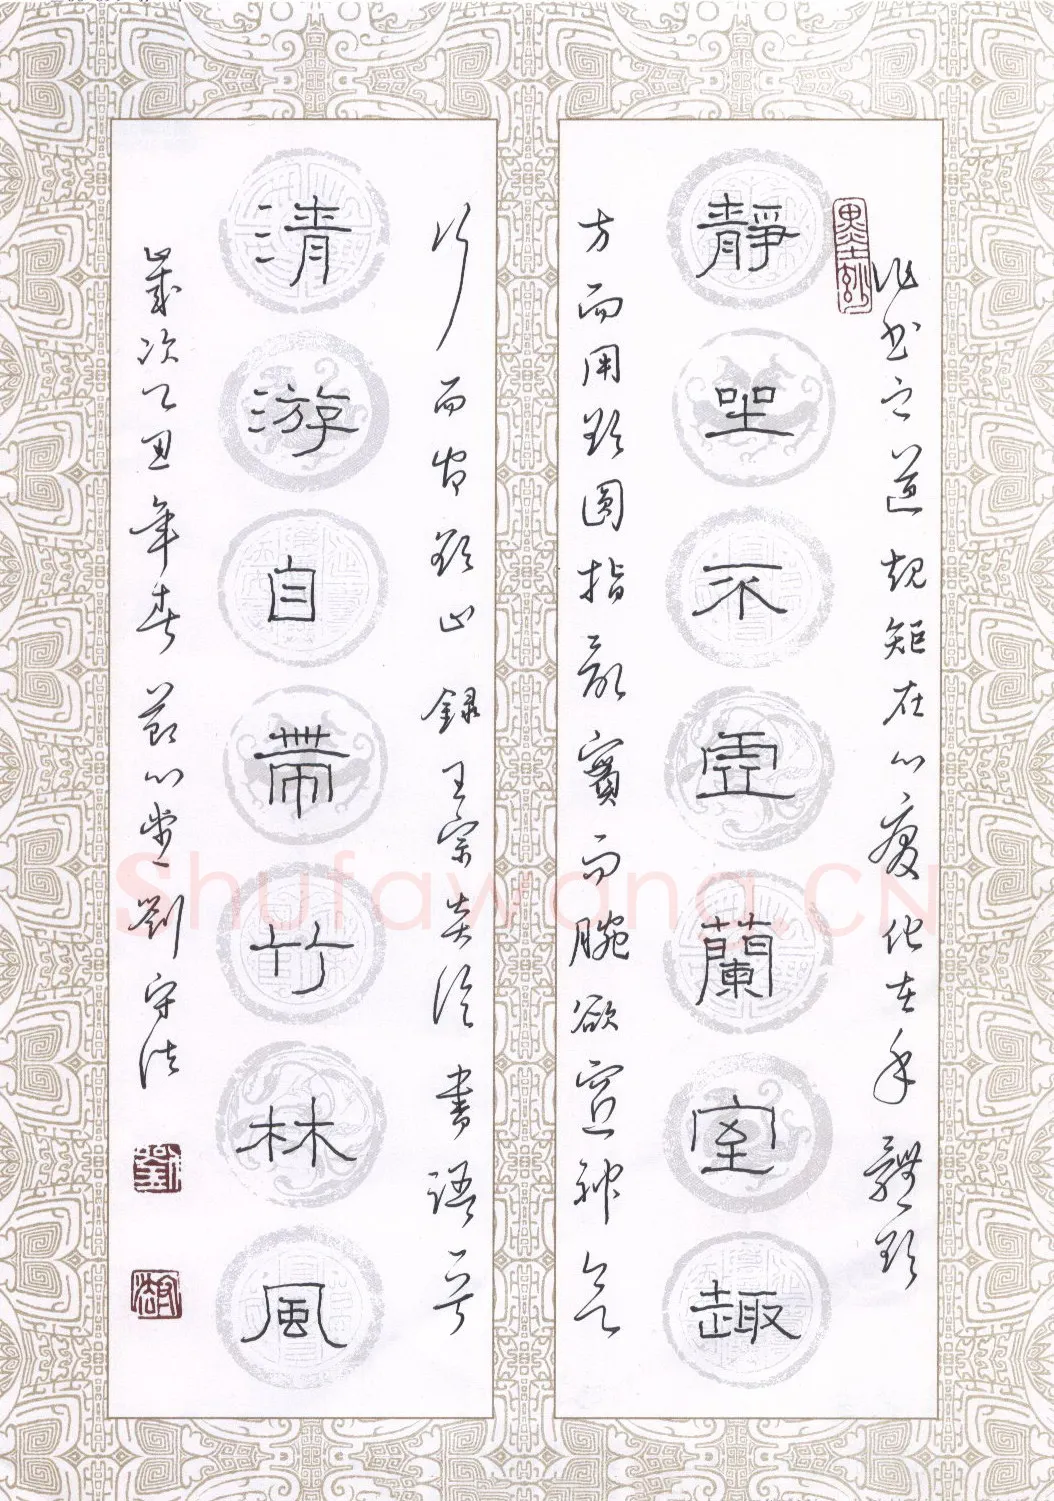 作書之道規矩在心变化在手體欲
墨妙
靜坐不虛蘭室趣
方而用欲圓指欲實而腕欲空神欲
行而官欲止錄王宗炎論書語一
清游自帶竹林風
歲次乙丑年春心堂劉守法
劉